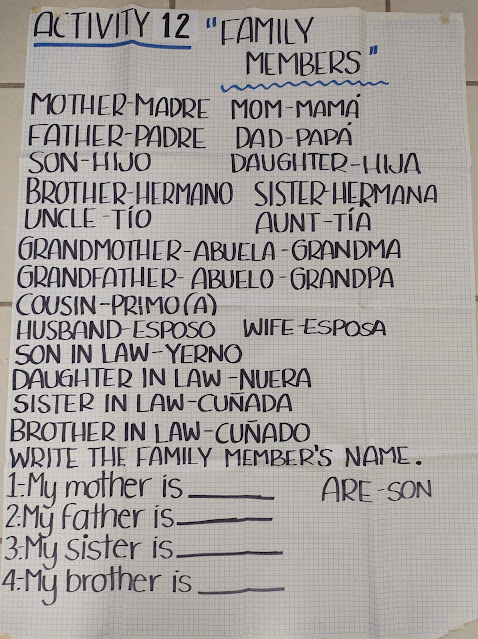 ACTIVITY 12 "FAMILY
MEMBERS"
MOTHER-MADRE MOM-MAMÁ
FATHER-PADRE DAD-PAPÁ
SON-HIJO DAUGHTER-HIJA
BROTHER-HERMANO SISTER-HERMANA
UNCLE-TÍO AUNT-TÍA
GRANDMOTHER-ABUELA-GRANDMA
GRANDFATHER-ABUELO-GRANDPA
COUSIN-PRIMO(A)
HUSBAND-ESPOSO WIFE-ESPOSA
SON IN LAW-YERNO
DAUGHTER IN LAW-NUERA
SISTER IN LAW-CUÑADA
BROTHER IN LAW-CUÑADO
WRITE THE FAMILY MEMBER'S NAME.
1.-My mother is ______ ARE-SON
2.-My father is ______
3.-My sister is ______
4.-My brother is ______